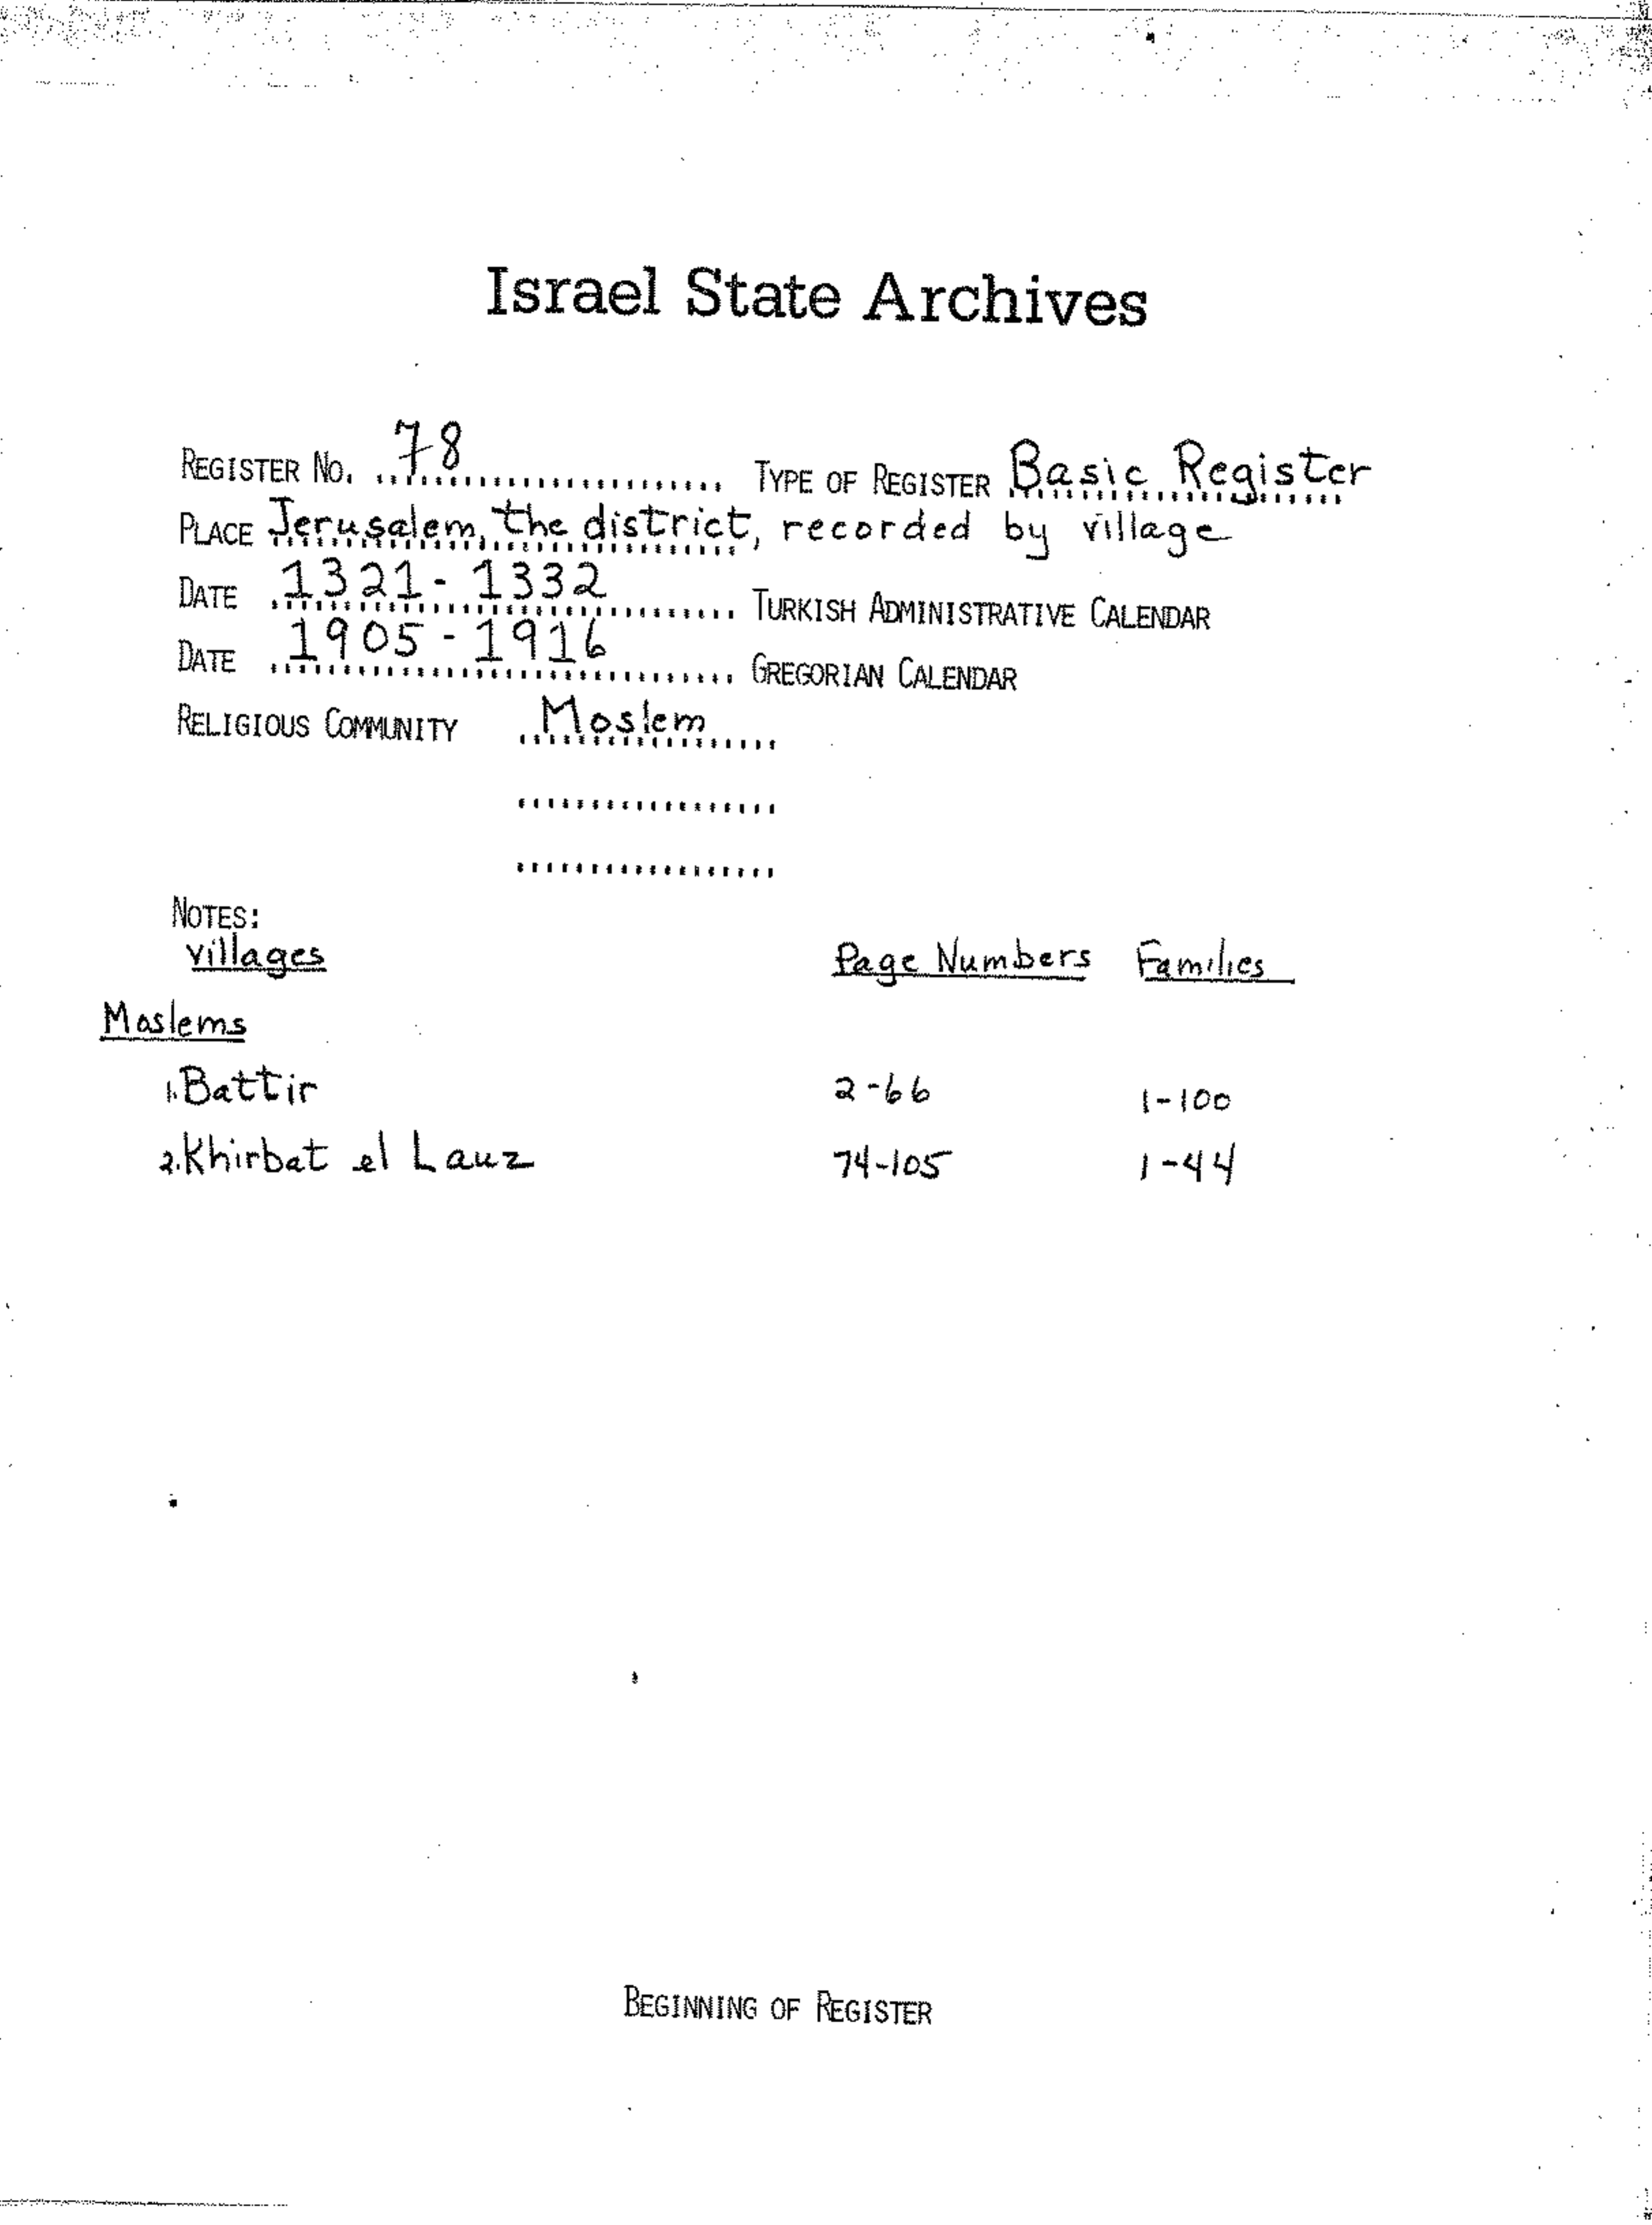 Israel State Archives
REGISTER NO. 78 TYPE OF REGISTER Basic Register
PLACE Jerusalem, the district, recorded by village
DATE 1321-1332 TURKISH ADMINISTRATIVE CALENDAR
DATE 1905-1916 GREGORIAN CALENDAR
RELIGIOUS COMMUNITY Moslem
NOTES:
villages Page Numbers Families
Moslems
1. Battir 2-66 1-100
2. Khirbat el Lauz 74-105 1-44
BEGINNING OF REGISTER